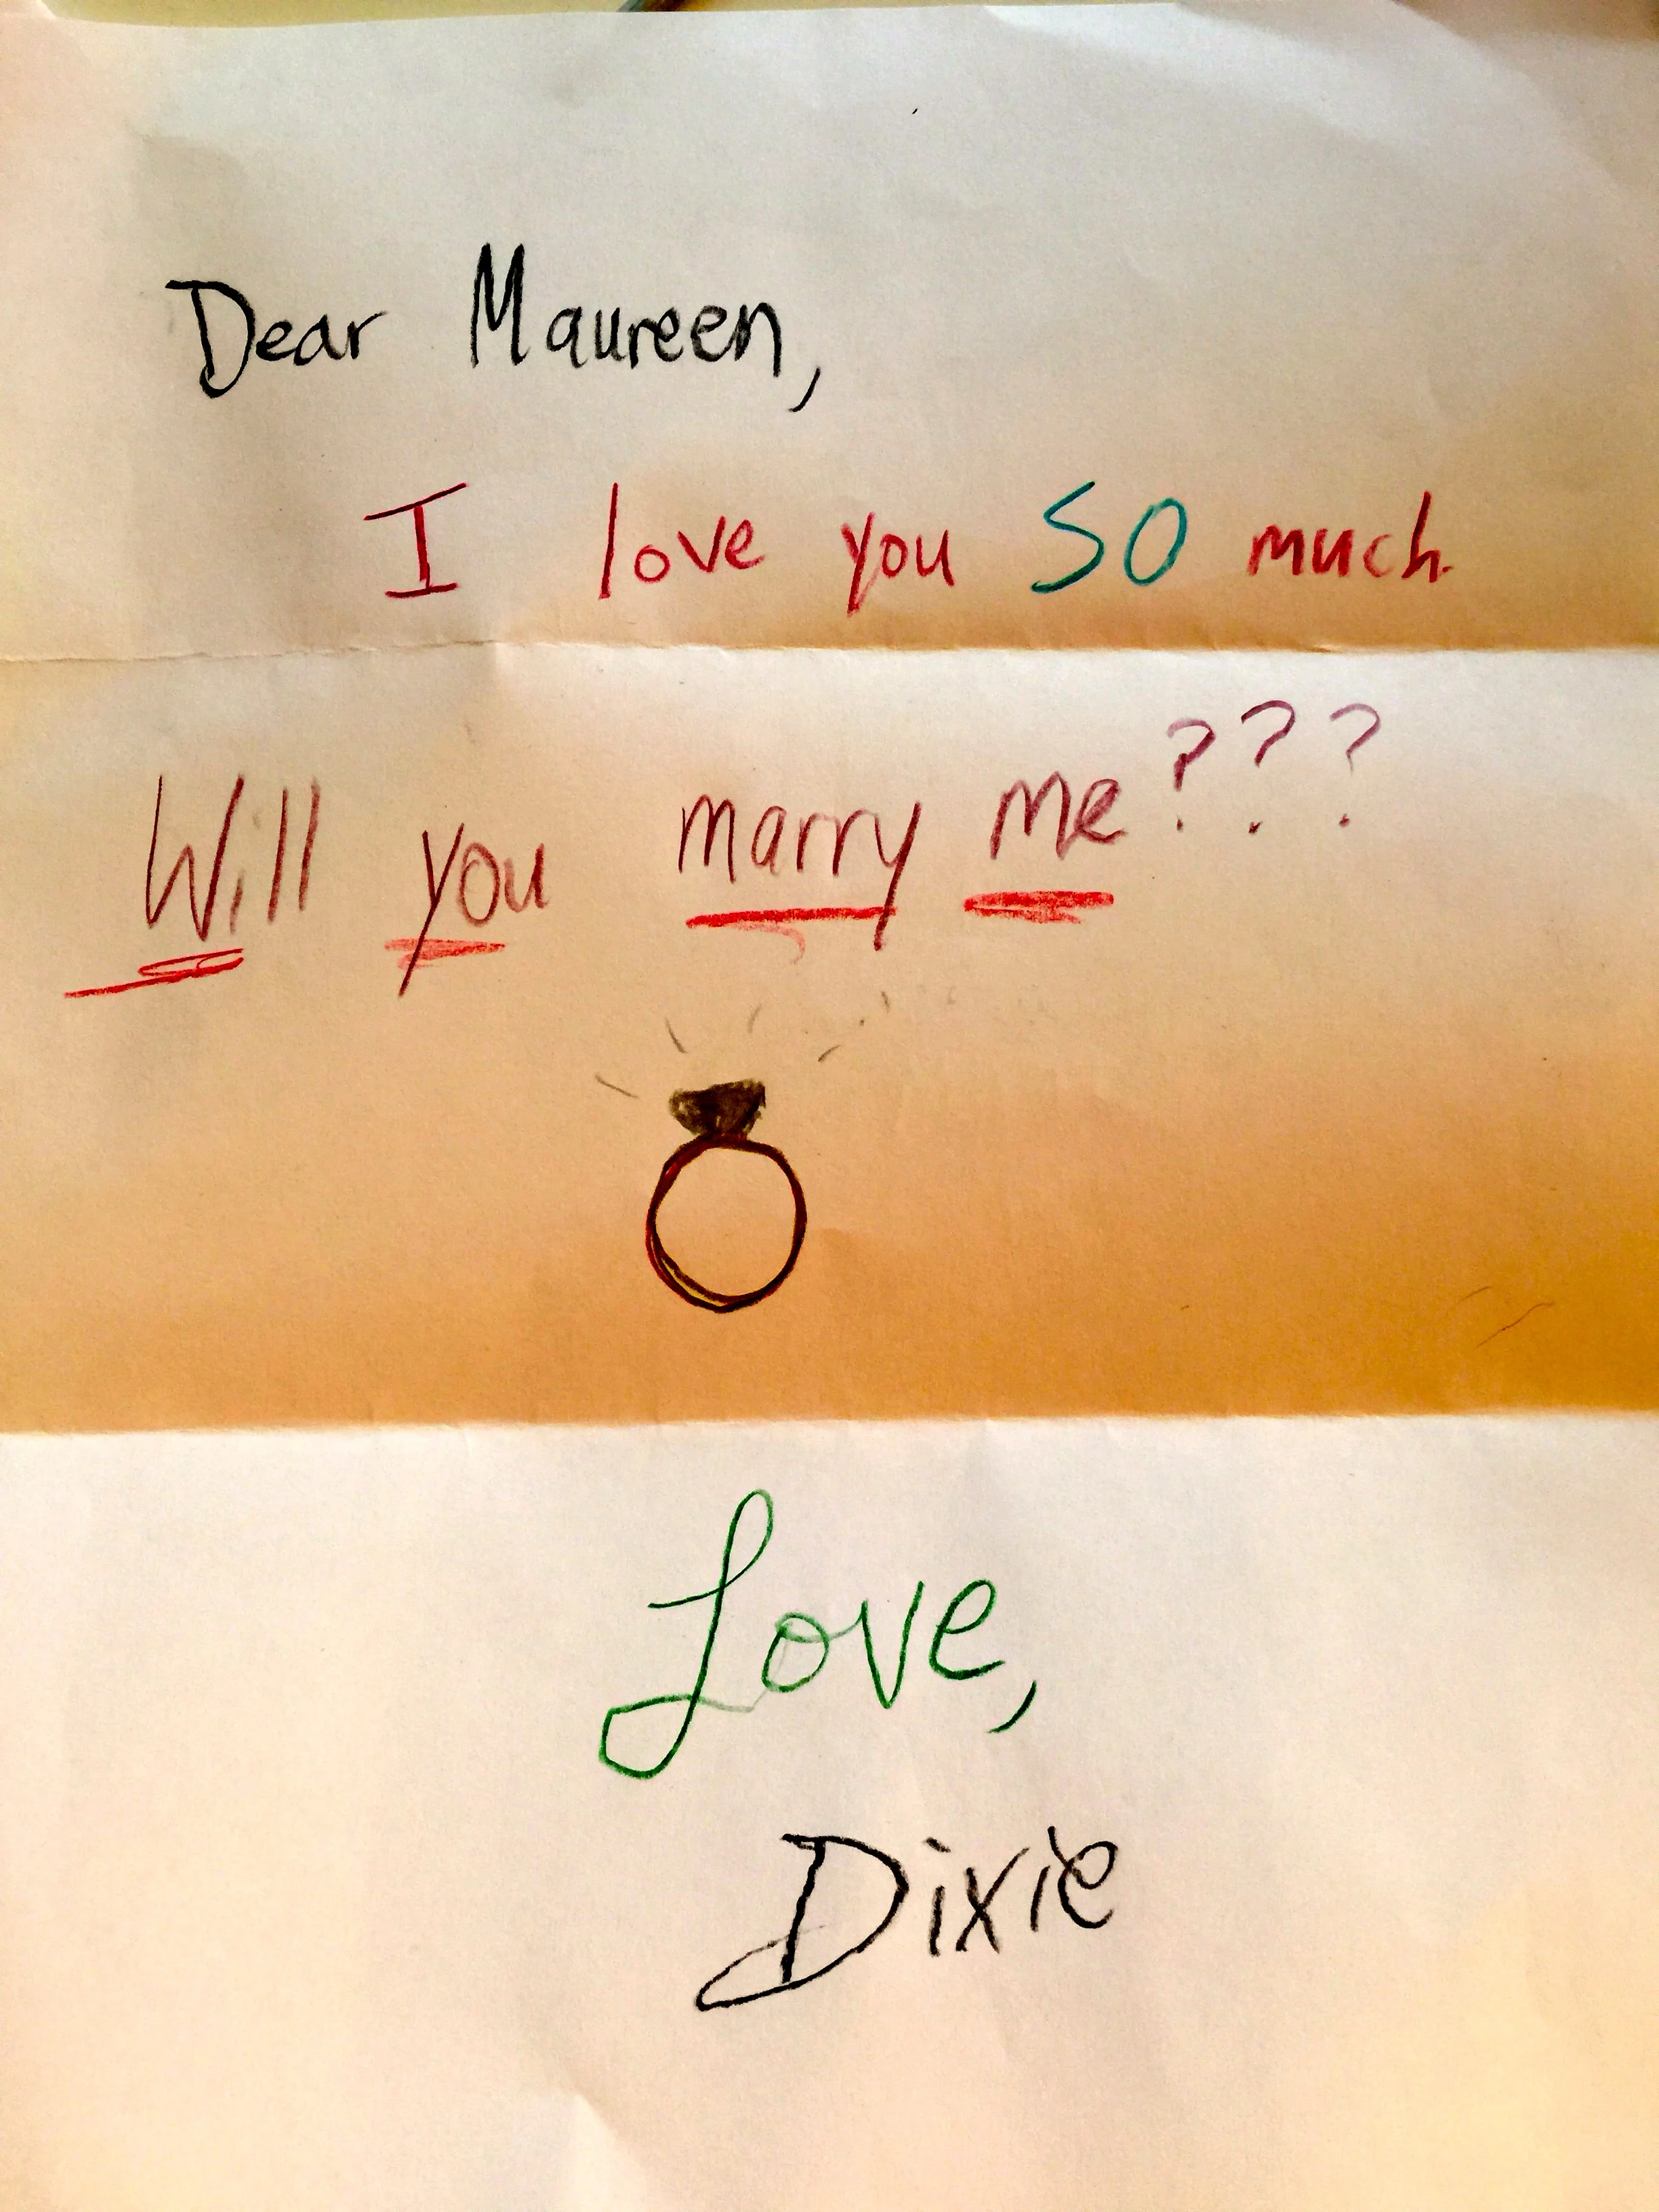 Dear Maureen,
I love you SO much.
Will you marry me???
Love,
Dixie